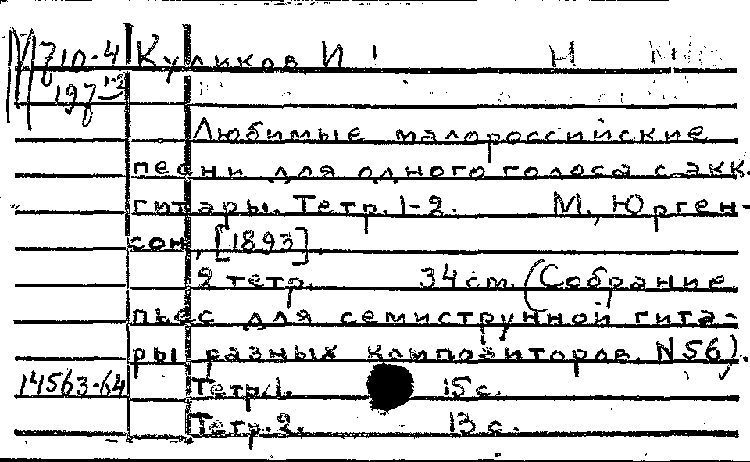 М 710-4 Куликов И Н
197 1-2
Любимые малороссийские
песни для одного голоса с акк.
гитары. Тетр. 1-2. М., Юрген-
сон, [1893]
2 тетр. 34 см. (Собрание
пьес для семиструнной гита-
ры разных композиторов. N 56).
14563-64 Тетр. 1. 15 с.
Тетр. 2. 13 с.